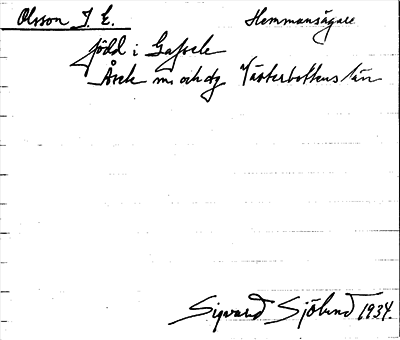 Olsson J. E. Hemmansägare
född i Gafsele
Åsele m. och dg Västerbottens län
Sigvard Sjölund 1934.